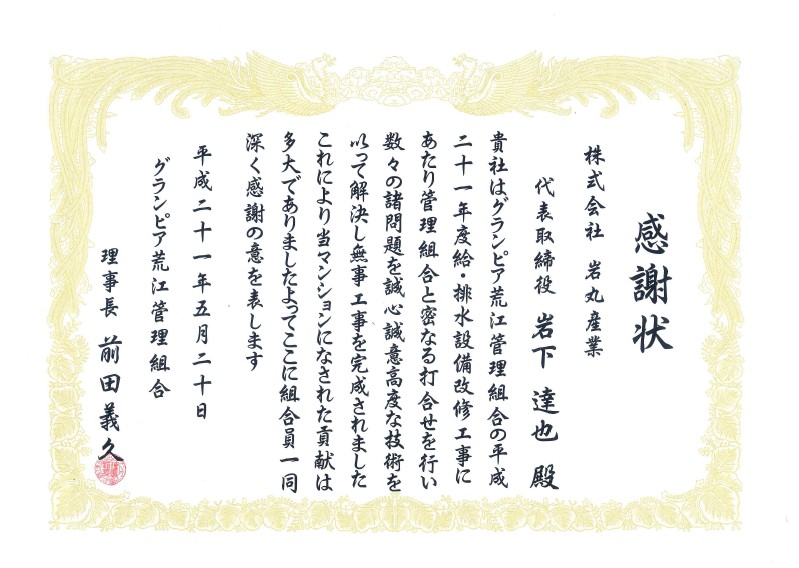 感謝状
株式会社 岩丸産業
代表取締役 岩下 達也 殿
貴社はグランピア荒江管理組合の平成
二十一年度給・排水設備改修工事に
あたり管理組合と密なる打合せを行い
数々の諸問題を誠心誠意高度な技術を
以って解決し無事工事を完成されました
これにより当マンションになされた貢献は
多大でありましたよってここに組合員一同
深く感謝の意を表します
平成二十一年五月二十日
グランピア荒江管理組合
理事長 前田義久